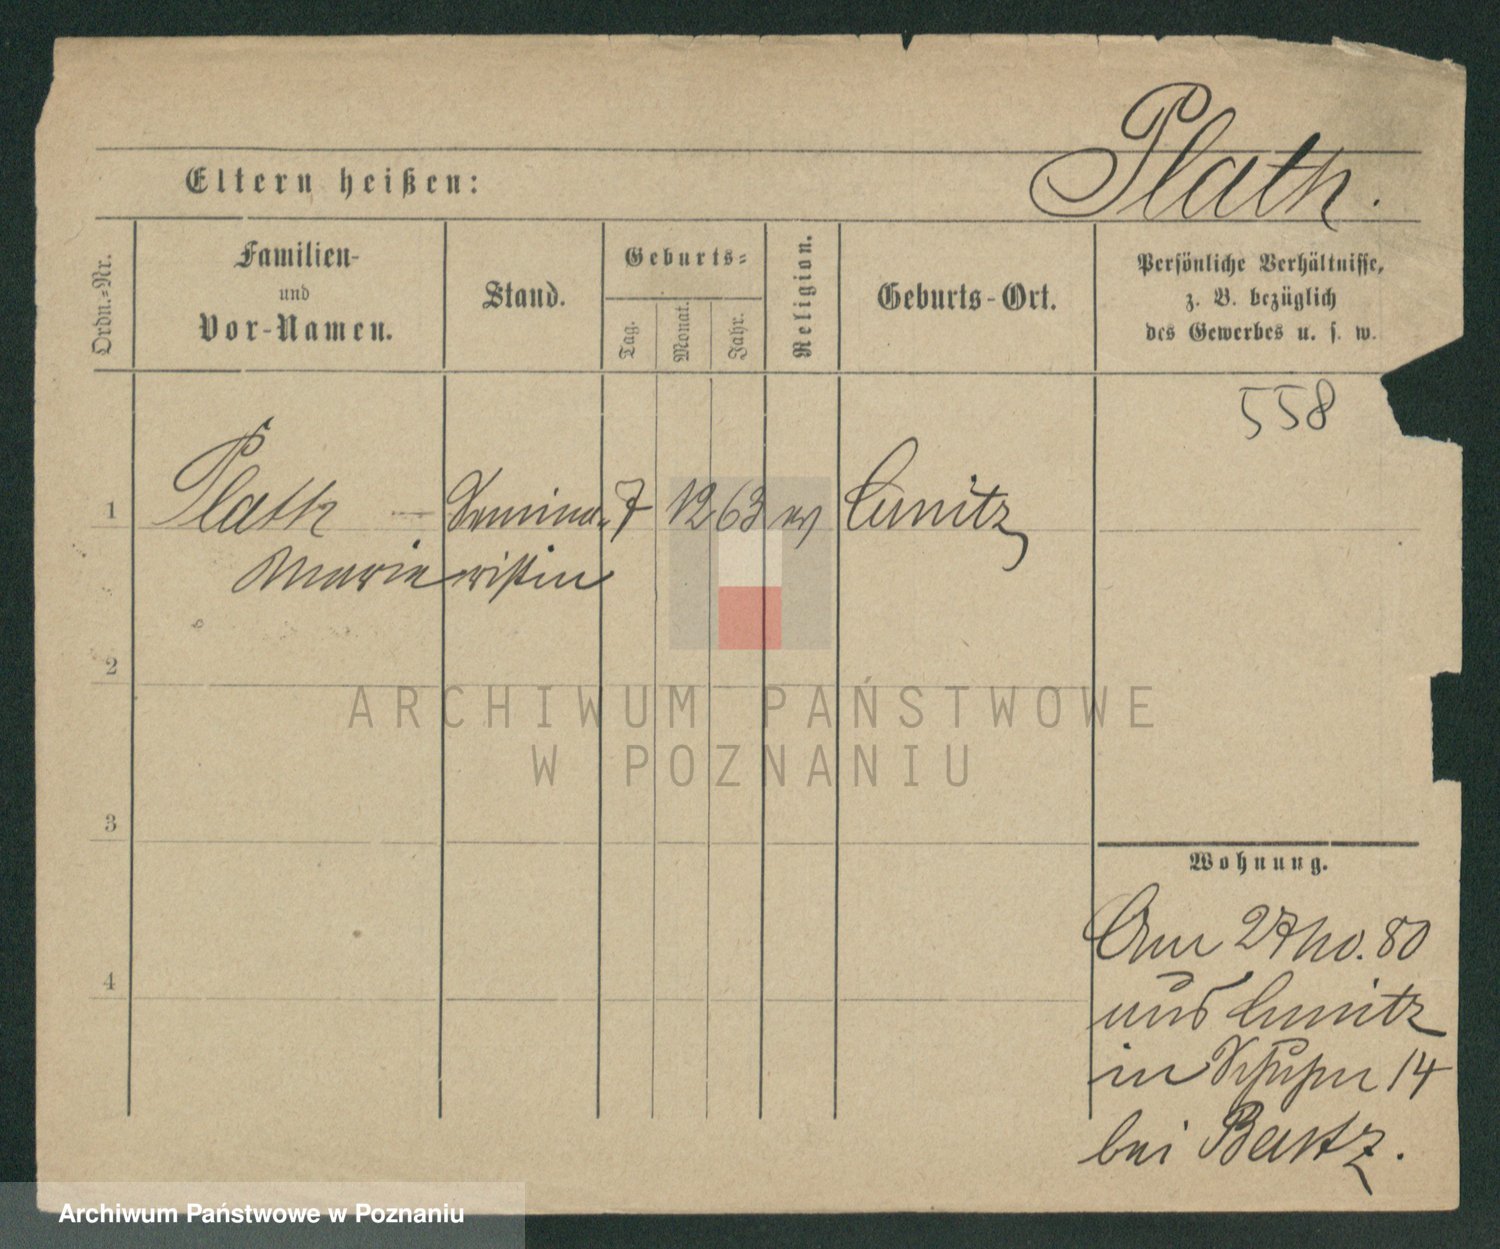 Plath.
Eltern heißen:
Ordn.-Nr.
Familien-
und
Vor-Namen.
Stand.
Geburts-
Tag.
Monat.
Jahr.
Religion.
Geburts-Ort.
Persönliche Verhältnisse,
z. B. bezüglich
des Gewerbes u. s. w.
558
1 Plath — Semina- 7 12 63 ev
Marie ristin
2
3
4
ARCHIWUM PAŃSTWOWE
W POZNANIU
Wohnung.
Am 27 no. 80
aus
in 14
bei
Archiwum Państwowe w Poznaniu